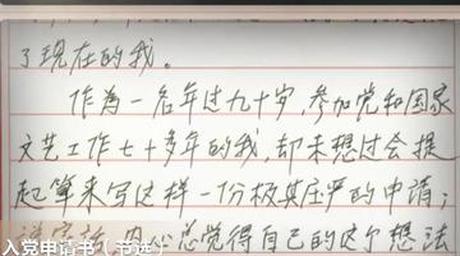 了现在的我。
作为一名年过九十岁,参加党和国家
文艺工作七十多年的我,却未想过会提
起笔来写这样一份极其庄严的申请;
说实话,内心总觉得自己的这个想法
入党申请书(节选)